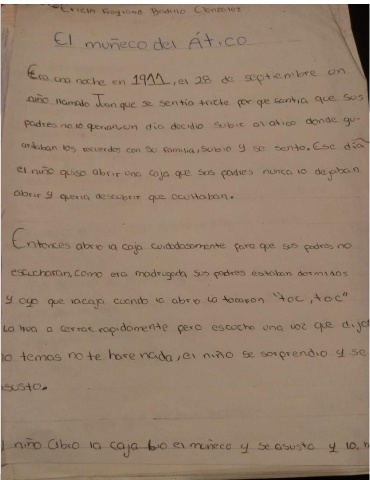 Bonilla Gonzalez
El muñeco del Ático
Era una noche en 1911, el 28 de septiembre un
niño llamado Juan que se sentia triste por qe sentia que sus
padres no lo querian un dia decidio subir al atico donde gu-
ardaban los recuerdos con su familia, subio y se sento. Ese dia
el niño quiso abrir una caja que sus padres nunca lo dejaban
abrir y queria descubrir que ocultaban.
Entonces abrio la caja cuidadosamente para que sus padres no
escucharan, como era madrugada sus padres estaban dormidos
y oyo que la caja cuando la abrio la tocaron "toc, toc"
La iva a cerrar rapidamente pero escucho una voz que dijo
no temas no te hare nada, el niño se sorprendio y se
asusto.
niño abrio la caja bio el muñeco y se asusto y lo